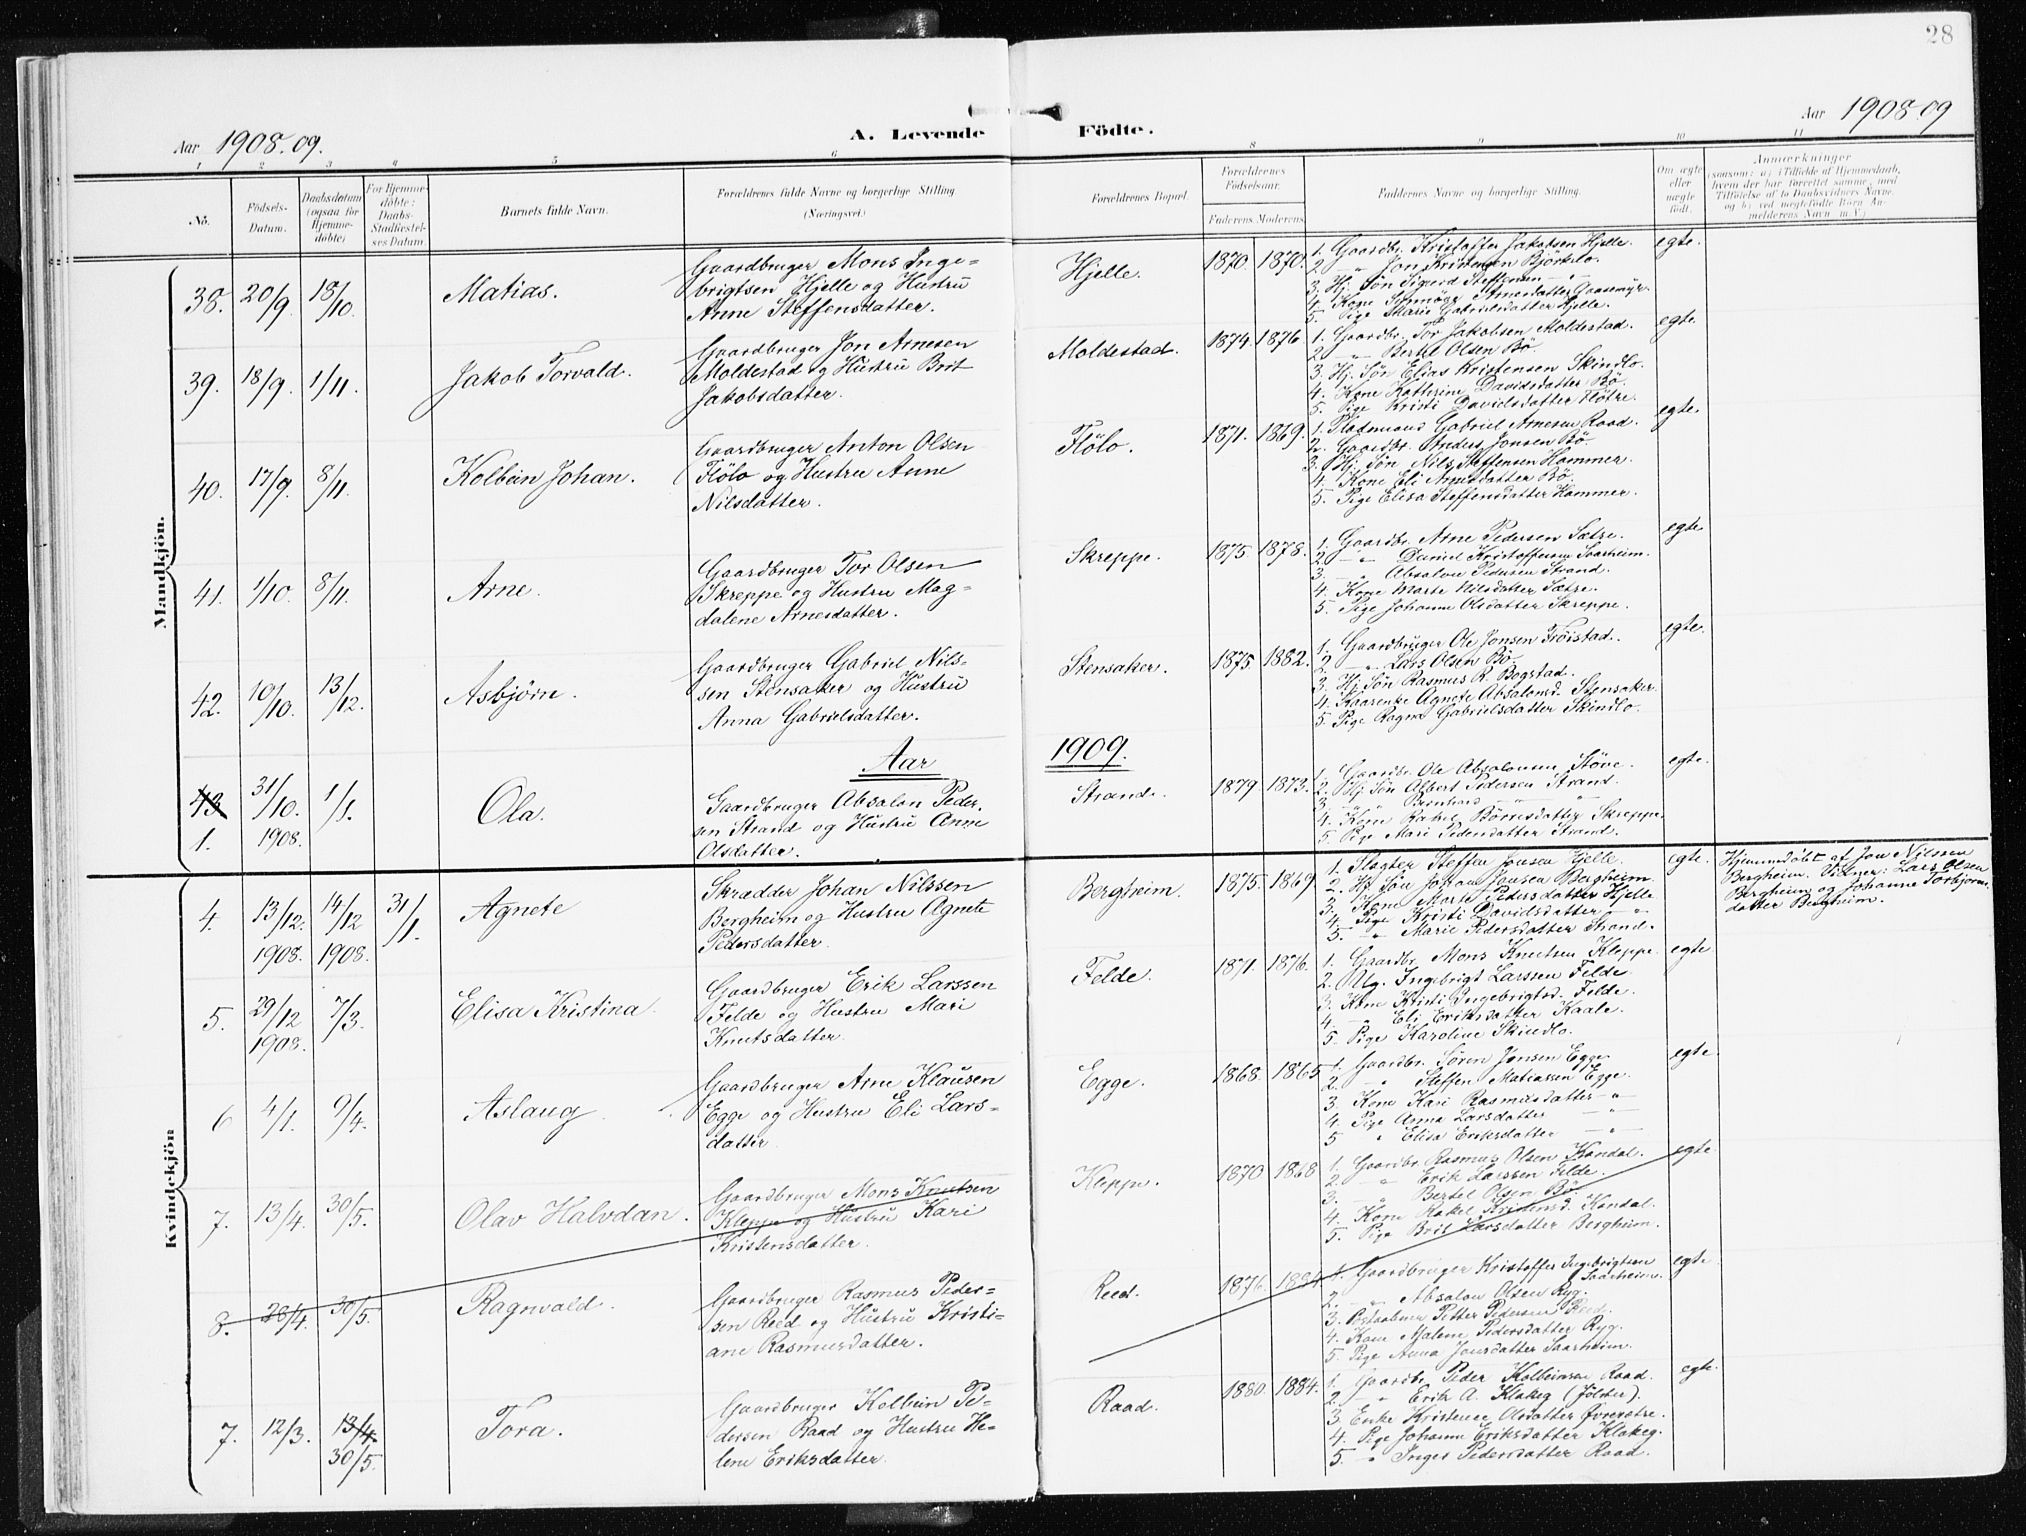 28
Aar 1908-09.
A. Levende Födte.
Aar 1908-09
1 2 3 4 5 6 8 9 10 11
No.
Födsels-
Datum.
Daabsdatum
(ogsaa for
Hjemme-
döbte)
For Hjemme-
döbte:
Daabs-
Stadfæstel-
ses Datum
Barnets fulde Navn.
Forældrenes fulde Navne og borgerlige Stilling
(Næringsvei.)
Forældrenes Bopæl.
Forældrenes
Födselsaar.
Faderens Moderens.
Faddernes Navne og borgerlige Stilling.
Om ægte
eller
uægte
født.
Anmærkninger
(saasom: a) i Tilfælde af Hjemmedaab,
hvem der har forrettet samme, med
Tilföielse af to Daabsvidners Navne.
og b) ved uægtefödte Börn An-
melderens Navn m. V.)
Mandkjön.
38. 20/9 18/10 Matias.
Gaardbruger Mons Inge-
brigtsen Hjelle og Hustru
Anne Steffensdatter.
Hjelle. 1870. 1870.
1. Gaardbr. Kristoffer Jakobsen Hjelle.
2. " Jon Kristensen Bjørkelo.
3. Hj. Søn Sigurd Steffensen "
4. Kone Arnesdatter
5. Pige Marie Gabrielsdatter Hjelle.
egte.
39. 18/9. 1/11. Jakob Torvald.
Gaardbruger Jon Arnesen
Moldestad og Hustru Brit
Jakobsdatter.
Moldestad. 1874. 1876.
1. Gaardbr. Tor Jakobsen Moldestad.
2. " Bertel Olsen Bö.
3. Hj. Søn Elias Kristensen Skindlo.
4. Kone Kathrine Davidsdatter Bö.
5. Pige Kristi Davidsdatter Fløtre.
egte.
40. 17/9. 8/11. Kolbein Johan.
Gaardbruger Anton Olsen
Flölo og Hustru Anne
Nilsdatter.
Flölo. 1871. 1869.
1. Gabriel Arnesen Raad.
2. Gaardbr. Anders Jonsen Bö.
3. Hj. Søn Nils Steffensen Hammer.
4. Kone Eli Arnesdatter Bö.
5. Pige Elisa Steffensdatter Hammer.
egte.
41. 1/10. 8/11. Arne.
Gaardbruger Tor Olsen
Skreppe og Hustru Mag-
dalene Arnesdatter.
Skreppe. 1875. 1878.
1. Gaardbr. Arne Pedersen Sætre.
2. " Daniel Kristoffersen Saarheim.
3. " Absalon Pedersen Strand.
4. Kone Marte Nilsdatter Sætre.
5. Pige Johanne Olsdatter Skreppe.
egte.
42. 10/10. 13/12. Asbjørn.
Gaardbruger Gabriel Nils-
sen Stensaker og Hustru
Anna Gabrielsdatter.
Stensaker. 1875. 1882.
1. Gaardbruger Ole Jonsen Troistad.
2. " Lars Olsen Bö.
3. Hj. Søn Rasmus R. Bogstad.
4. Agnete Absalonsd. Stensaker
5. Pige Ragna Gabrielsdatter Skindlo.
egte.
Aar 1909.
43 1. 31/10. 1908. 1/1. Ola.
Gaardbruger Absalon Peder-
sen Strand og Hustru Anne
Olsdatter.
Strand. 1879. 1873.
1. Gaardbr. Ole Absalonsen Støve.
2. Hj. Søn Albert Pedersen Strand.
3. " Bernhard " "
4. Kone Rakel Börresdatter Skreppe.
5. Pige Mari Pedersdatter Strand.
egte.
Kvindekjön
4. 13/12. 1908. 14/12 1908. 31/1. Agnete
Skrædder Johan Nilssen
Bergheim og Hustru Agnete
Pedersdatter.
Bergheim. 1875. 1869.
1. Slagter Steffen Jonsen Hjelle.
2. Hj. Søn Johan Jonsen Bergheim.
3. Kone Marte Pedersdatter Hjelle
4. Pige Kristi Davidsdatter "
5. " Marie Pedersdatter Strand.
egte.
Hjemmedöbt af Jon Nilssen
Bergheim. Vidner: Lars Olsen
Bergheim og Johanne Torbjørns-
datter Bergheim.
5. 29/12 1908. 7/3. Elisa Kristina.
Gaardbruger Erik Larssen
Felde og Hustru Mari
Knutsdatter.
Felde. 1871. 1876.
1. Gaardbr. Mons Knutsen Kleppe.
2. Ug. Ingebrigt Larssen Felde.
3. Kone Kristi Ingebrigtsd. Felde.
4. " Eli Eriksdatter Kaale.
5. Pige Karoline Skindlo.
egte
6 4/1. 9/4. Aslaug
Gaardbruger Arne Klausen
Egge og Hustru Eli Lars-
datter.
Egge. 1868. 1865
1. Gaardbr. Søren Jonsen Egge.
2. " Steffen Matiassen Egge.
3. Kone Kari Rasmusdatter "
4. Pige Anna Larsdatter "
5 " Elisa Eriksdatter "
egte.
7. 13/4. 30/5. Olav Halvdan.
Gaardbruger Mons Knutsen
Kleppe og Hustru Kari
Kristensdatter.
Kleppe. 1870 1868
1. Gaardbr. Rasmus Olsen Kandal.
2. " Erik Larssen Felde.
3. " Bertel Olsen Bö
4. Kone Rakel Kristensd. Kandal.
5. Pige Brit Larsdatter Bergheim.
egte
8. 28/4. 30/5. Ragnvald.
Gaardbruger Rasmus Peder-
sen Reed og Hustru Kristi-
ane Rasmusdatter.
Reed. 1876. 1884
1. Gaardbruger Kristoffer Ingebrigtsen
Saarheim.
2. " Absalon Olsen Ryg.
3. Petter Pedersen Reed.
4. Kone Malene Pedersdatter Ryg.
5. Pige Anna Jonsdatter Saarheim.
egte.
7. 12/3. 13/4. 30/5. Tora.
Gaardbruger Kolbein Pe-
dersen Raad og Hustru He-
lene Eriksdatter.
Raad. 1880. 1884.
1. Gaardbr. Peder Kolbeinsen Raad.
2. " Erik A. Klakeg (Jölster).
3. Enke Kristence Olsdatter Øvresøtre.
4. Pige Johanne Eriksdatter Klakeg.
5. " Inger Pedersdatter Raad.
egte.